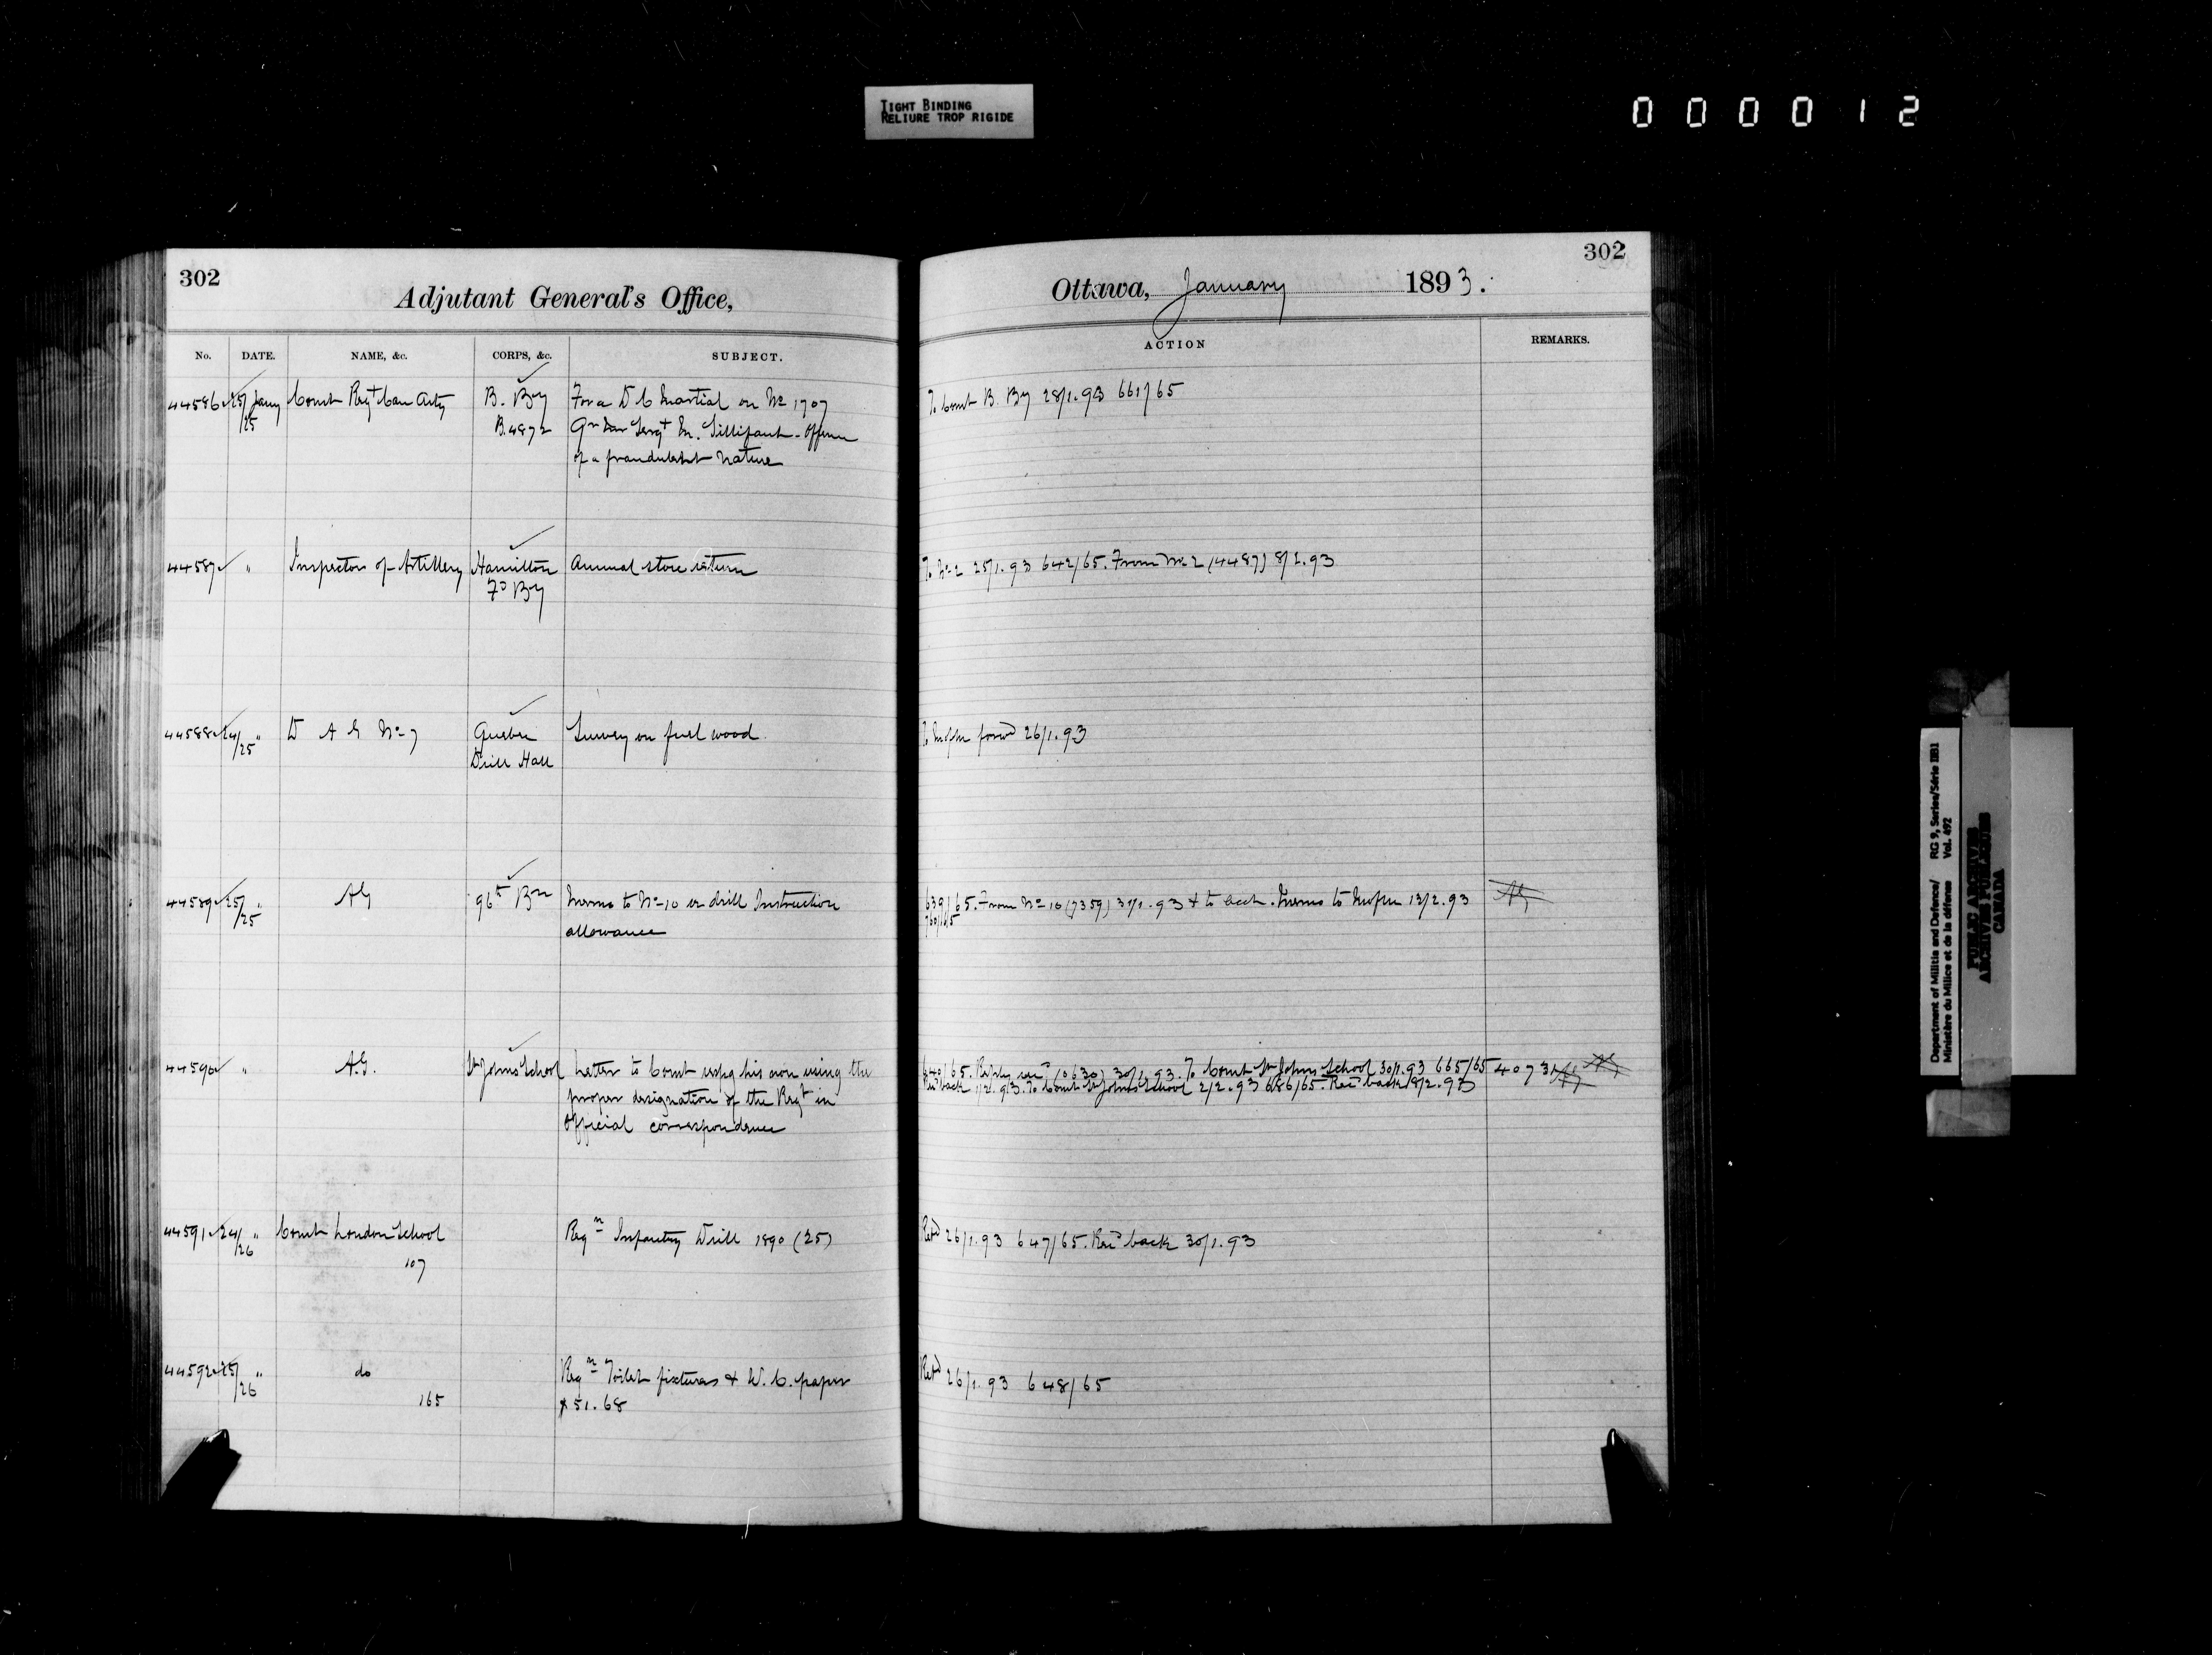 TIGHT BINDING
RELIURE TROP RIGIDE
000012
302
Adjutant General's Office,
No. DATE. NAME, &c. CORPS, &c. SUBJECT.
44586 25/25 Jany Comt Regt Can Arty B. By For a D C Martial on No 1707
B.4872 Sergt Sillifant - offence
of a fraudulent nature
44587 " Inspector of Artillery Hamilton Annual store return
Fd By
44588 24/25 " D A G No 7 Quebec Survey on fuel wood.
Drill Hall
44589 25/25 " AG 96th Bn Memo to No 10 re drill Instruction
allowance
44590 " A.G. St Johns School Letter to Comt respg his non using the
proper designation of the Regt in
Official correspondence
44591 24/26 " Comt London School Reqn Infantry Drill 1890 (25)
107
44592 25/26 " do Reqn Toilet fixtures & W.C. paper
165 $51.68
302
Ottawa, January 1893.
ACTION REMARKS.
To Comt B. By 28/1.93 661/65
To No 2 25/1.93 642/65. From No 2 (4487) 8/2.93
To forwd 26/1.93
639/65. From No 10 (7359) 31/1.93 & to Acct. Memo to 13/2.93
760/65
640/65. Reply recd (2630) 30/1.93. To Comt St Johns School 30/1.93 665/65 40731
Recd back 1/2.93. To Comt St Johns School 2/2.93 686/65. Recd back 9/2.93
Retd 26/1.93 647/65. Recd back 30/1.93
Retd 26/1.93 648/65
Department of Militia and Defence/ RG 9, Series/Série IIB1
Ministère du Milice et de la défense Vol. 492
PUBLIC ARCHIVES
ARCHIVES PUBLIQUES
CANADA